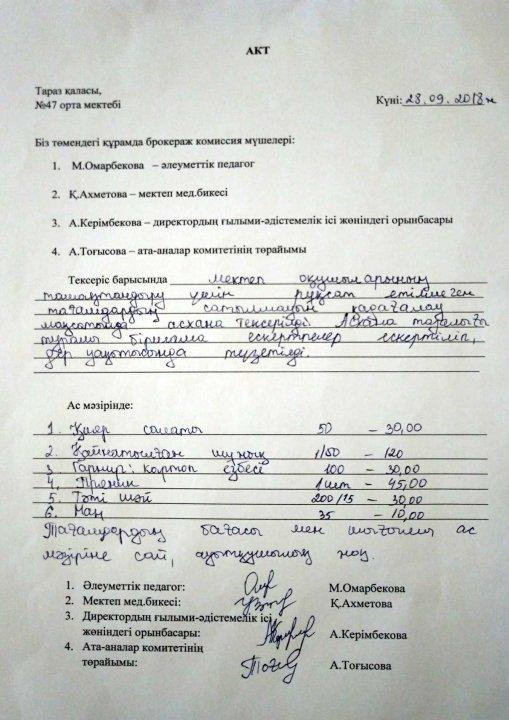 АКТ
Тараз қаласы,
№47 орта мектебі
Күні: 28.09.2018ж
Біз төмендегі құрамда брокераж комиссия мүшелері:
1. М.Омарбекова – әлеуметтік педагог
2. Қ.Ахметова – мектеп мед.бикесі
3. А.Керімбекова – директордың ғылыми-әдістемелік ісі жөніндегі орынбасары
4. А.Тоғысова – ата-аналар комитетінің төрайымы
Тексеріс барысында мектеп оқушыларының
тамақтандыру үшін рұқсат етілмеген
тағамдардың сатылмауын қадағалау
мақсатында асхана тексерілді. Асхана тазалығы
туралы бірнеше ескертпелер ескертіліп,
дер уақытысында түзетілді.
Ас мәзірінде:
1. Қияр салаты 50 – 30,00
2. Қайнатылған шұжық 1/50 – 120
3. Гарнир: картоп езбесі 100 – 30,00
4. Пряник 1 шт – 45,00
5. Тәтті шай 200/15 – 30,00
6. Нан 35 – 10,00
Тағамдардың бағасы мен шығымы ас
мәзіріне сай, ауытқушылық жоқ.
1. Әлеуметтік педагог: М.Омарбекова
2. Мектеп мед.бикесі: Қ.Ахметова
3. Директордың ғылыми-әдістемелік ісі
жөніндегі орынбасары: А.Керімбекова
4. Ата-аналар комитетінің
төрайымы: А.Тоғысова